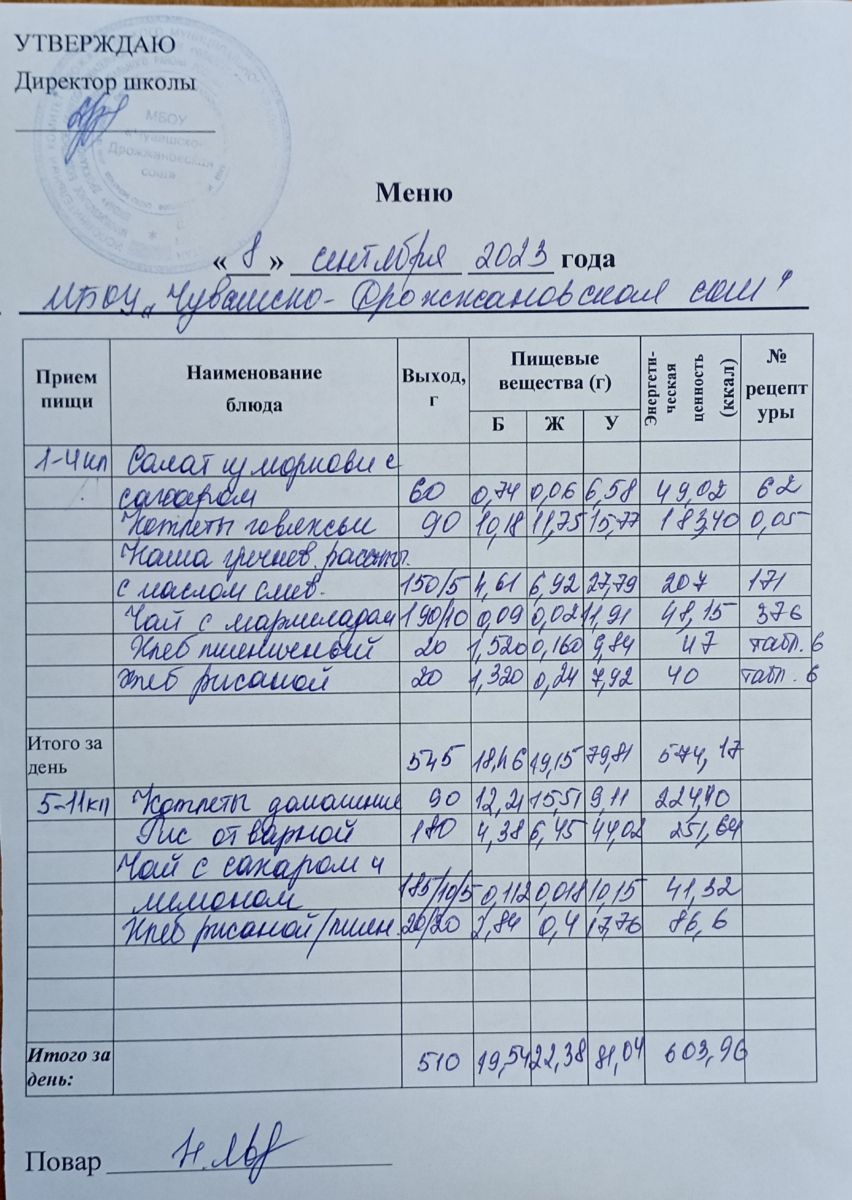 УТВЕРЖДАЮ
Директор школы
МБОУ
«Чувашско-
Дрожжановская
сош»
Меню
« 8 » сентября 2023 года
МБОУ „Чувашско-Дрожжановская сош"
Прием пищи Наименование блюда Выход, г Пищевые вещества (г) Энергети-ческая ценность (ккал) № рецепт уры
Б Ж У
1-4 кл Салат из моркови с
сахаром 60 0,74 0,06 6,58 49,02 62
Котлеты говяжьи 90 10,18 11,75 15,77 183,40 0,05
Каша гречнев. рассып.
с маслом слив. 150/5 4,61 6,92 27,79 207 171
Чай с мармеладом 190/10 0,09 0,02 11,91 48,15 376
Хлеб пшеничный 20 1,520 0,160 9,84 47 табл. 6
Хлеб ржаной 20 1,320 0,24 7,92 40 табл. 6
Итого за день 545 18,46 19,15 79,81 574,17
5-11 кл Котлеты домашние 90 12,21 15,51 9,11 224,40
Рис отварной 180 4,38 6,45 44,02 251,64
Чай с сахаром и
лимоном 185/10/5 0,112 0,018 10,15 41,32
Хлеб ржаной/пшен. 20/20 2,84 0,4 17,76 86,6
Итого за день: 510 19,54 22,38 81,04 603,96
Повар